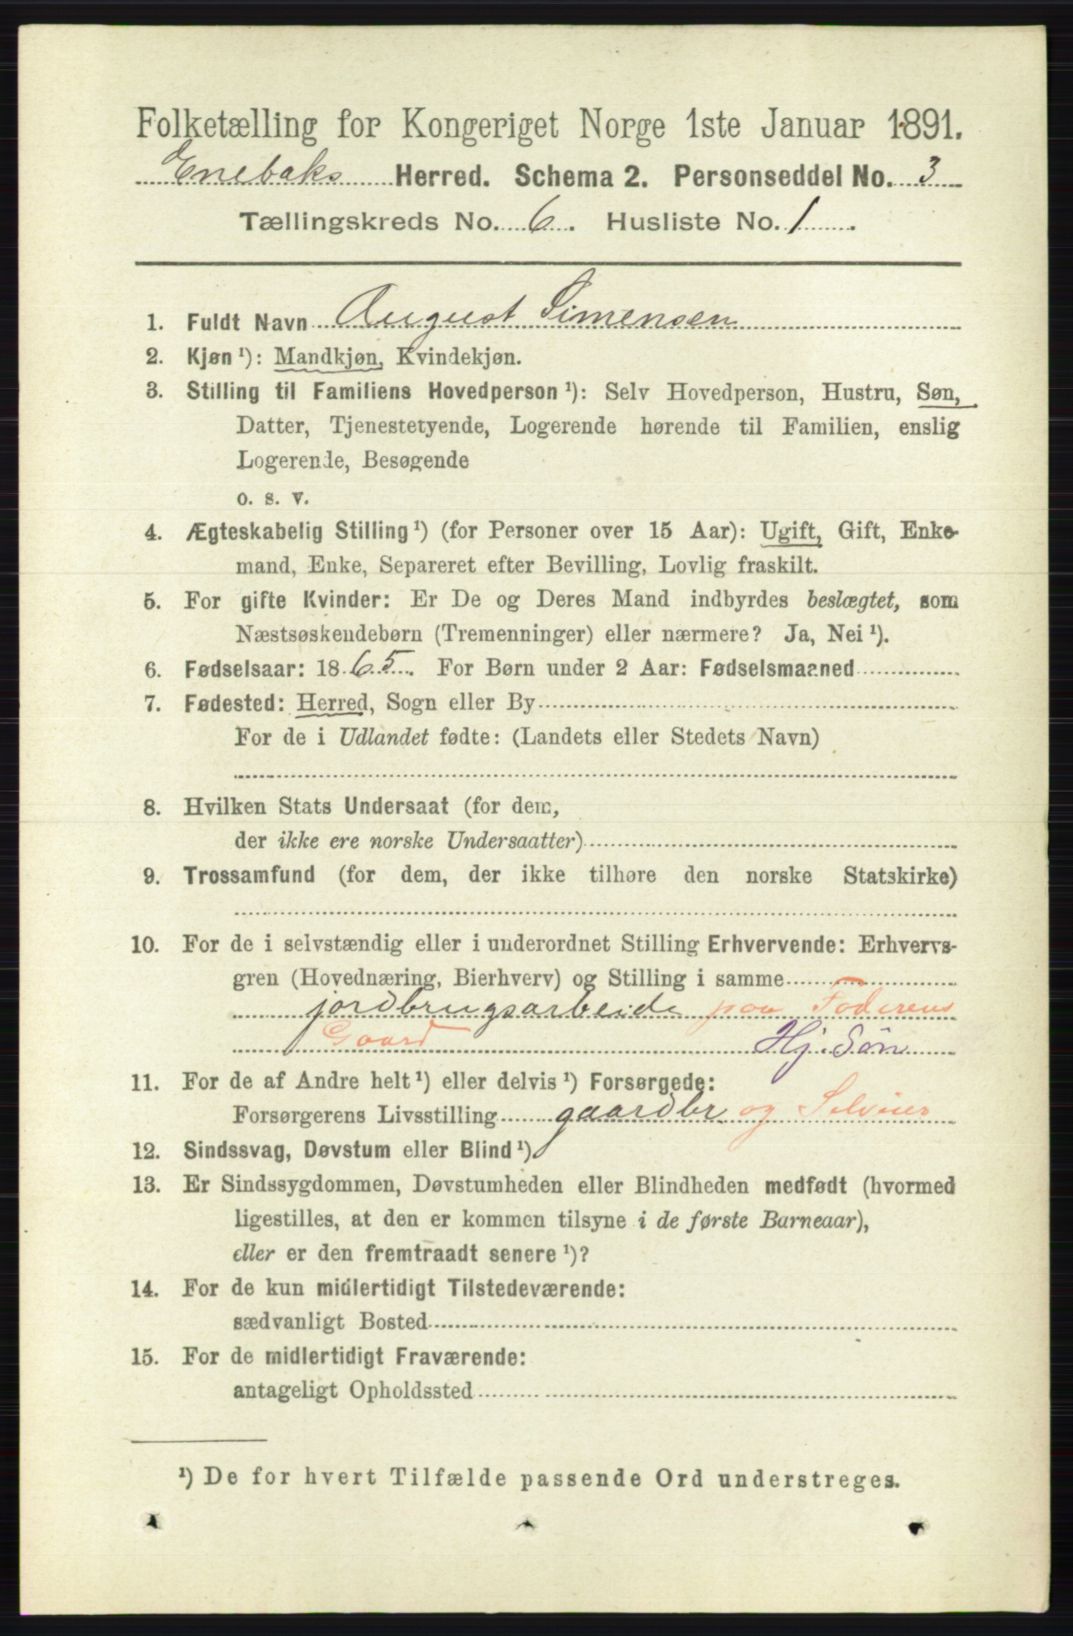 Folketælling for Kongeriget Norge 1ste Januar 1891.
Enebaks Herred. Schema 2. Personseddel No. 3
Tællingskreds No. 6. Husliste No. 1.
1. Fuldt Navn August Simensen
2. Kjøn ¹): Mandkjøn, Kvindekjøn.
3. Stilling til Familiens Hovedperson ¹): Selv Hovedperson, Hustru, Søn,
Datter, Tjenestetyende, Logerende hørende til Familien, enslig
Logerende, Besøgende
o. s. v.
4. Ægteskabelig Stilling ¹) (for Personer over 15 Aar): Ugift, Gift, Enke-
mand, Enke, Separeret efter Bevilling, Lovlig fraskilt.
5. For gifte Kvinder: Er De og Deres Mand indbyrdes beslægtet, som
Næstsøskendebørn (Tremenninger) eller nærmere? Ja, Nei ¹).
6. Fødselsaar: 1865. For Børn under 2 Aar: Fødselsmaaned
7. Fødested: Herred, Sogn eller By
For de i Udlandet fødte: (Landets eller Stedets Navn)
8. Hvilken Stats Undersaat (for dem,
der ikke ere norske Undersaatter)
9. Trossamfund (for dem, der ikke tilhøre den norske Statskirke)
10. For de i selvstændig eller i underordnet Stilling Erhvervende: Erhvervs-
gren (Hovednæring, Bierhverv) og Stilling i samme
jordbrugsarbeide paa Faderens
Gaard Hj. Søn
11. For de af Andre helt ¹) eller delvis ¹) Forsørgede:
Forsørgerens Livsstilling gaardbr og Selveier
12. Sindssvag, Døvstum eller Blind ¹)
13. Er Sindssygdommen, Døvstumheden eller Blindheden medfødt (hvormed
ligestilles, at den er kommen tilsyne i de første Barneaar),
eller er den fremtraadt senere ¹)?
14. For de kun midlertidigt Tilstedeværende:
sædvanligt Bosted
15. For de midlertidigt Fraværende:
antageligt Opholdssted
¹) De for hvert Tilfælde passende Ord understreges.